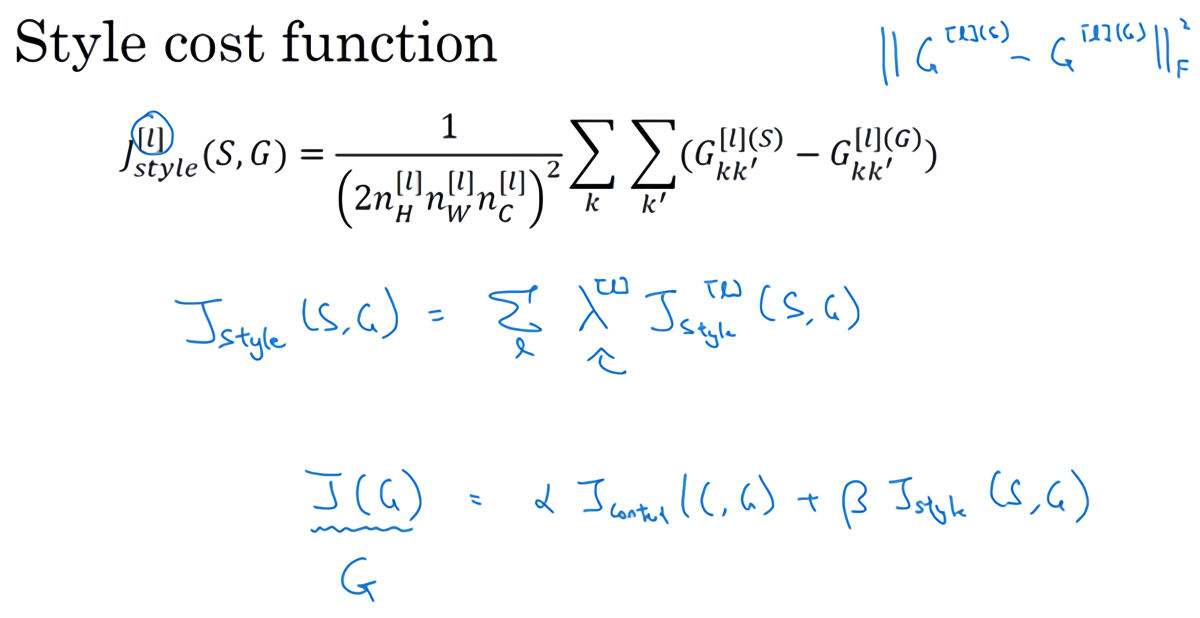 Style cost function
‖ G^{[l](S)} − G^{[l](G)} ‖_F^2
J_{style}^{[l]}(S, G) = \frac{1}{(2n_H^{[l]} n_W^{[l]} n_C^{[l]})^2} ∑_k ∑_{k'} (G_{kk'}^{[l](S)} − G_{kk'}^{[l](G)})
J_{style} (S, G) = ∑_l λ^{[l]} J_{style}^{[l]} (S, G)
J(G) = α J_{content} (C, G) + β J_{style} (S, G)
G